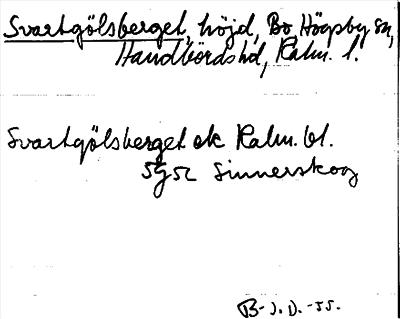 Svartgölsberget, höjd, Bo, Högsby sn,
Handbördshd, Kalm. l.
Svartgölsberget ek Kalm. bl.
5g52 Sinnerskog
B-J.D.-55.